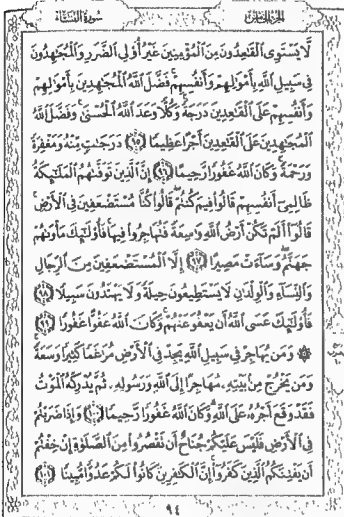 سورة النساء
الجزء الخامس
لَّا يَسْتَوِي الْقَاعِدُونَ مِنَ الْمُؤْمِنِينَ غَيْرُ أُولِي الضَّرَرِ وَالْمُجَاهِدُونَ
فِي سَبِيلِ اللَّهِ بِأَمْوَالِهِمْ وَأَنفُسِهِمْ فَضَّلَ اللَّهُ الْمُجَاهِدِينَ بِأَمْوَالِهِمْ
وَأَنفُسِهِمْ عَلَى الْقَاعِدِينَ دَرَجَةً وَكُلًّا وَعَدَ اللَّهُ الْحُسْنَىٰ وَفَضَّلَ اللَّهُ
الْمُجَاهِدِينَ عَلَى الْقَاعِدِينَ أَجْرًا عَظِيمًا ﴿٩٥﴾ دَرَجَاتٍ مِّنْهُ وَمَغْفِرَةً
وَرَحْمَةً وَكَانَ اللَّهُ غَفُورًا رَّحِيمًا ﴿٩٦﴾ إِنَّ الَّذِينَ تَوَفَّاهُمُ الْمَلَائِكَةُ
ظَالِمِي أَنفُسِهِمْ قَالُوا فِيمَ كُنتُمْ قَالُوا كُنَّا مُسْتَضْعَفِينَ فِي الْأَرْضِ
قَالُوا أَلَمْ تَكُنْ أَرْضُ اللَّهِ وَاسِعَةً فَتُهَاجِرُوا فِيهَا فَأُولَٰئِكَ مَأْوَاهُمْ
جَهَنَّمُ وَسَاءَتْ مَصِيرًا ﴿٩٧﴾ إِلَّا الْمُسْتَضْعَفِينَ مِنَ الرِّجَالِ
وَالنِّسَاءِ وَالْوِلْدَانِ لَا يَسْتَطِيعُونَ حِيلَةً وَلَا يَهْتَدُونَ سَبِيلًا ﴿٩٨﴾
فَأُولَٰئِكَ عَسَى اللَّهُ أَن يَعْفُوَ عَنْهُمْ وَكَانَ اللَّهُ عَفُوًّا غَفُورًا ﴿٩٩﴾
۞ وَمَن يُهَاجِرْ فِي سَبِيلِ اللَّهِ يَجِدْ فِي الْأَرْضِ مُرَاغَمًا كَثِيرًا وَسَعَةً
وَمَن يَخْرُجْ مِن بَيْتِهِ مُهَاجِرًا إِلَى اللَّهِ وَرَسُولِهِ ثُمَّ يُدْرِكْهُ الْمَوْتُ
فَقَدْ وَقَعَ أَجْرُهُ عَلَى اللَّهِ وَكَانَ اللَّهُ غَفُورًا رَّحِيمًا ﴿١٠٠﴾ وَإِذَا ضَرَبْتُمْ
فِي الْأَرْضِ فَلَيْسَ عَلَيْكُمْ جُنَاحٌ أَن تَقْصُرُوا مِنَ الصَّلَاةِ إِنْ خِفْتُمْ
أَن يَفْتِنَكُمُ الَّذِينَ كَفَرُوا إِنَّ الْكَافِرِينَ كَانُوا لَكُمْ عَدُوًّا مُّبِينًا ﴿١٠١﴾
٩٤